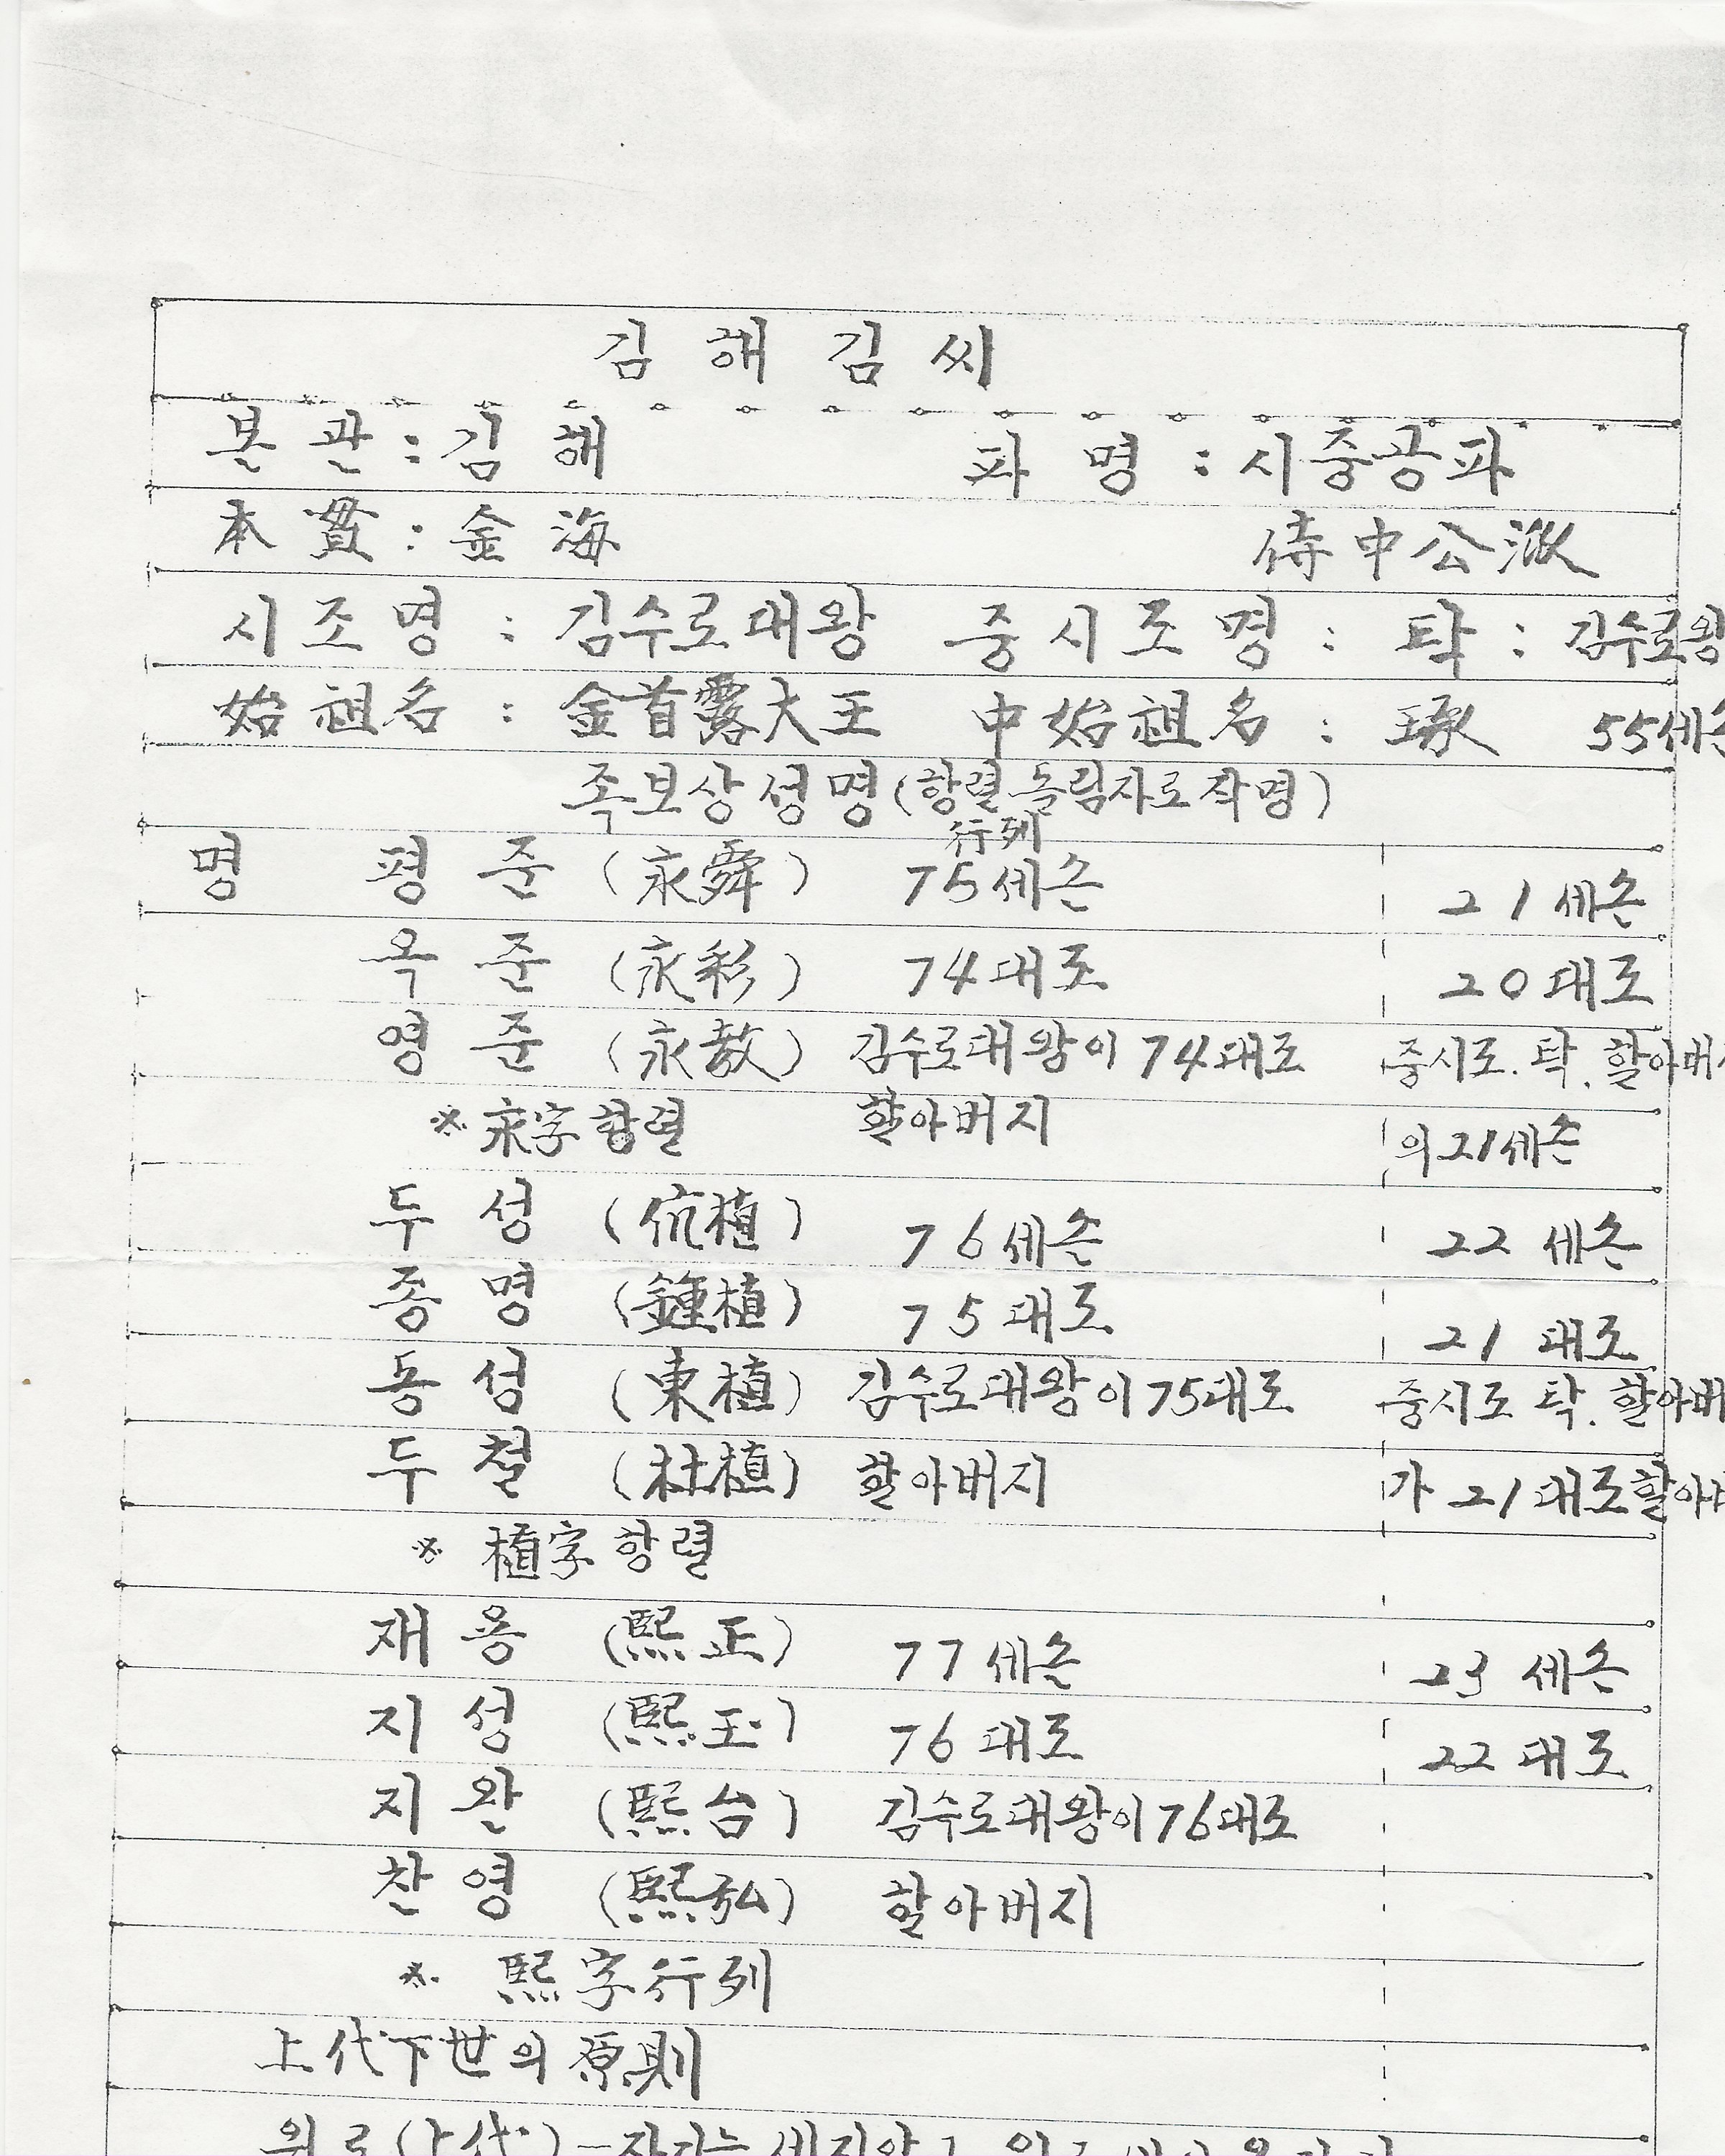 김 해 김 씨
본 관 : 김 해 파 명 : 시중공파
本 貫 : 金 海 侍中公派
시 조 명 : 김수로대왕 중 시 조 명 : 탁 : 김수로왕
始 祖 名 : 金首露大王 中 始 祖 名 : 琢 55세손
족보상 성명 (항렬 돌림자로 작명)
行列
명 평 준 (永舜) 75세손 21세손
옥 준 (永彩) 74대조 20대조
영 준 (永敎) 김수로대왕이 74대조 중시조. 탁. 할아버
※ 永字 항렬 할아버지 의 21세손
두 성 (伉植) 76세손 22 세손
종 명 (鍾植) 75대조 21 대조
동 성 (東植) 김수로대왕이 75대조 중시조 탁. 할아버
두 철 (杜植) 할아버지 가 21대조할아버
※ 植字 항렬
재 용 (熙正) 77세손 23 세손
지 성 (熙玉) 76대조 22대조
지 완 (熙台) 김수로대왕이 76대조
찬 영 (熙弘) 할아버지
※ 熙字行列
上代下世의 原則
위로(上代)-자기는 세지않고